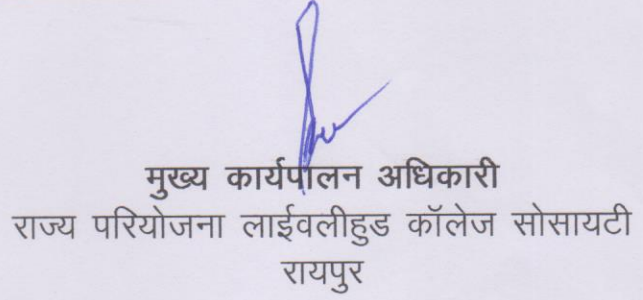 मुख्य कार्यपालन अधिकारी
राज्य परियोजना लाईवलीहुड कॉलेज सोसायटी
रायपुर